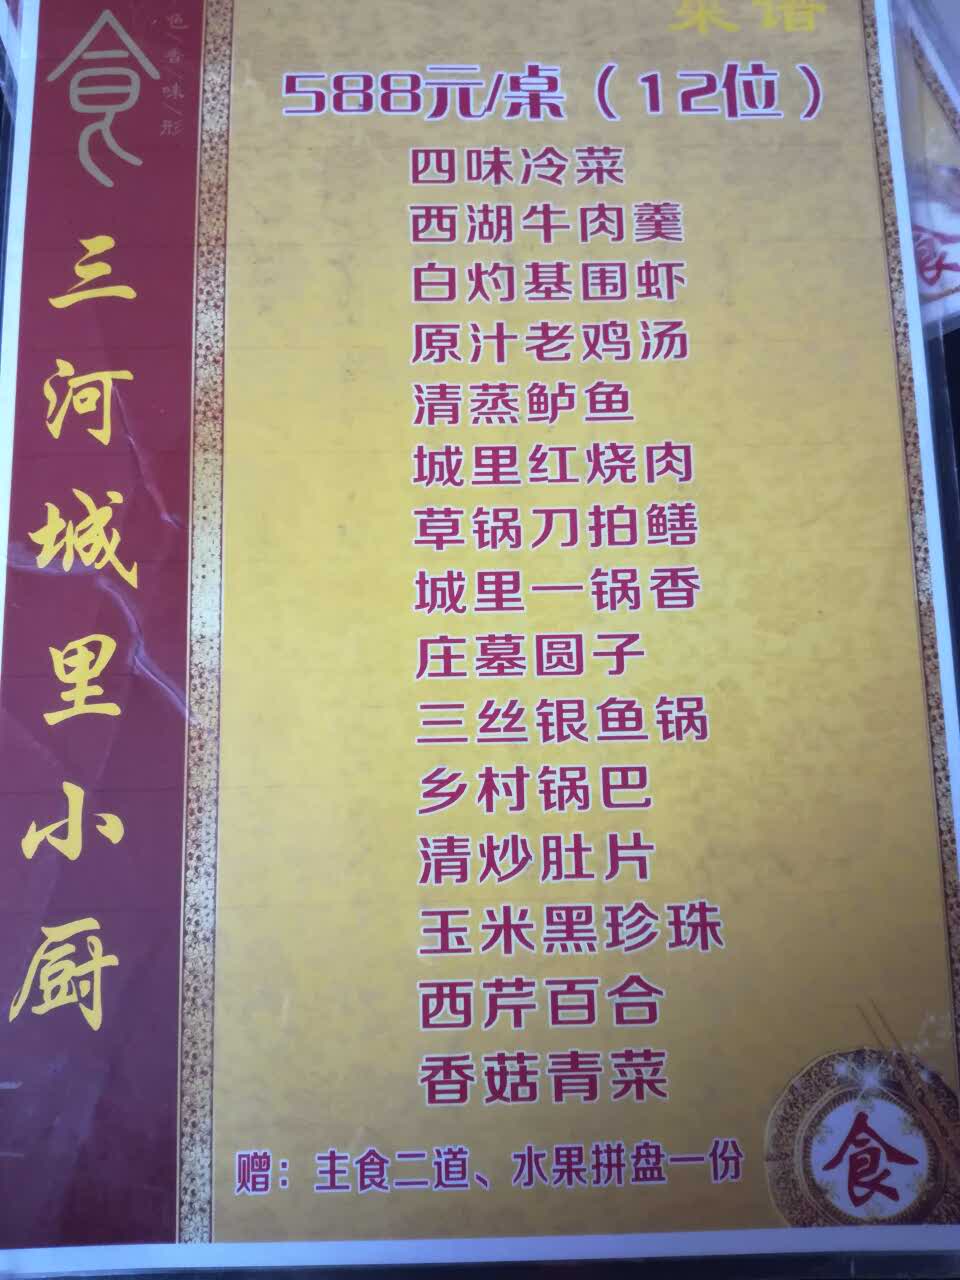 菜谱
食
色/香/味/形
三河城里小厨
588元/桌（12位）
四味冷菜
西湖牛肉羹
白灼基围虾
原汁老鸡汤
清蒸鲈鱼
城里红烧肉
草锅刀拍鳝
城里一锅香
庄墓圆子
三丝银鱼锅
乡村锅巴
清炒肚片
玉米黑珍珠
西芹百合
香菇青菜
赠：主食二道、水果拼盘一份
食
食